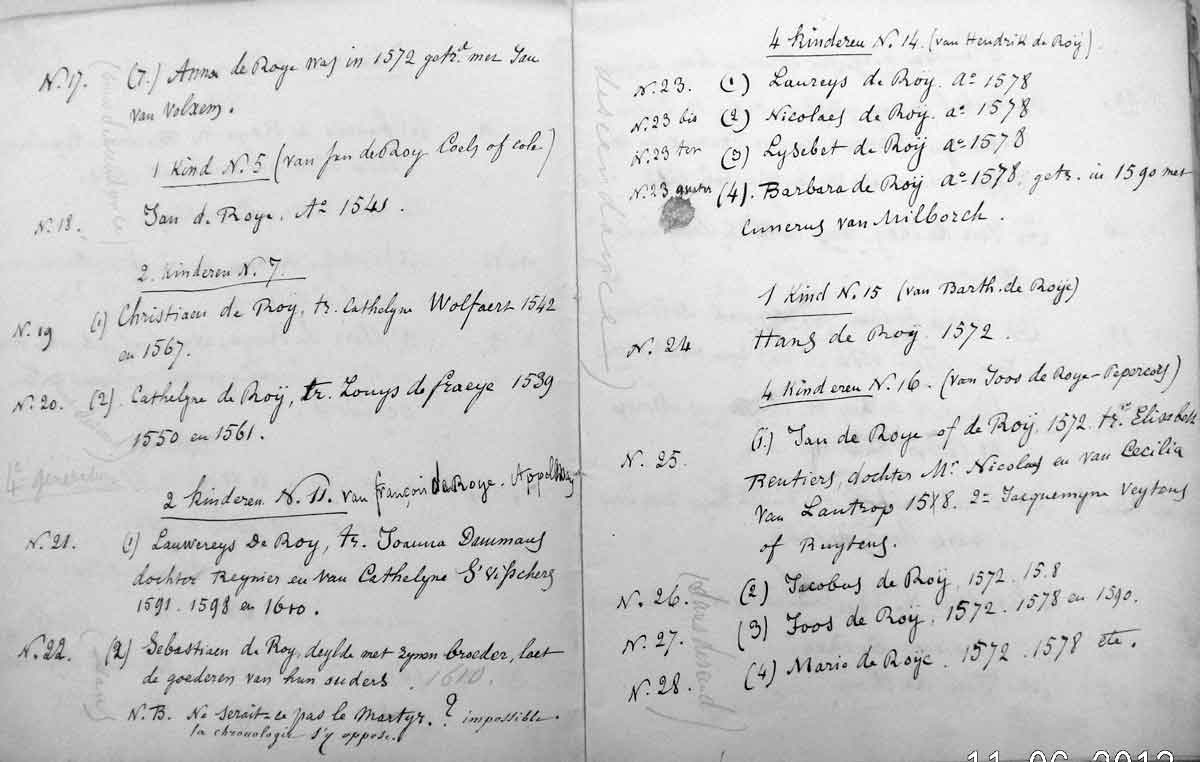 N. 17. (7.) Anna de Roye was in 1572 getr. met Jan
van Volxem.
1 Kind N. 5 (van Jan de Roy Coels of cole)
N. 18. Jan de Roye. Ao 1541.
2 kinderen N. 7.
N. 19 (1) Christiaen de Roÿ, tr. Cathelyne Wolfaert 1542
en 1567.
N. 20. (2) Cathelyne de Roÿ, tr. Louys de fraeye 1539
1550 en 1561.
4e génération
2 kinderen N. 11. van françois de Roye.
N. 21. (1) Lauwereys De Roy, tr. Joanna Dammans
dochter Reynier en van Cathelyne S'Visschers
1591. 1598 en 1610.
N. 22. (2) Sebastiaen de Roy, deylde met zynen broeder, laet
de goederen van hun ouders. 1610.
N.B. Ne serait-ce pas le Martyr. ? impossible.
la chronologie s'y oppose.
descendance
4 kinderen N. 14. (van Hendrik de Roÿ).
N. 23. (1) Laureys de Roÿ. ao 1578
N. 23 bis (2) Nicolaes de Roÿ. ao 1578
N. 23 ter (3) Lysebet de Roÿ ao 1578
N. 23 quater (4). Barbara de Roÿ ao 1578, getr. in 1590 met
Cunerus van Milborch.
1 Kind N. 15 (van Barth. de Roÿe)
N. 24 Hans de Roÿ. 1572.
4 Kinderen N. 16. (van Joos de Roye-Pepercoys)
N. 25. (1.) Jan de Roye of de Roÿ. 1572. tr. 1o Elisabeth
Rentiers, dochter Mr Nicolas en van Cecilia
van Lantrop 1578. 2o Jacquemyne Veytens
of Ruytens.
N. 26. (2) Jacobus de Roÿ. 1572. 15.8
N. 27. (3) Joos de Roÿ. 1572. 1578 en 1590.
N. 28. (4) Marie de Roÿe. 1572. 1578 etc.
11 06 2012